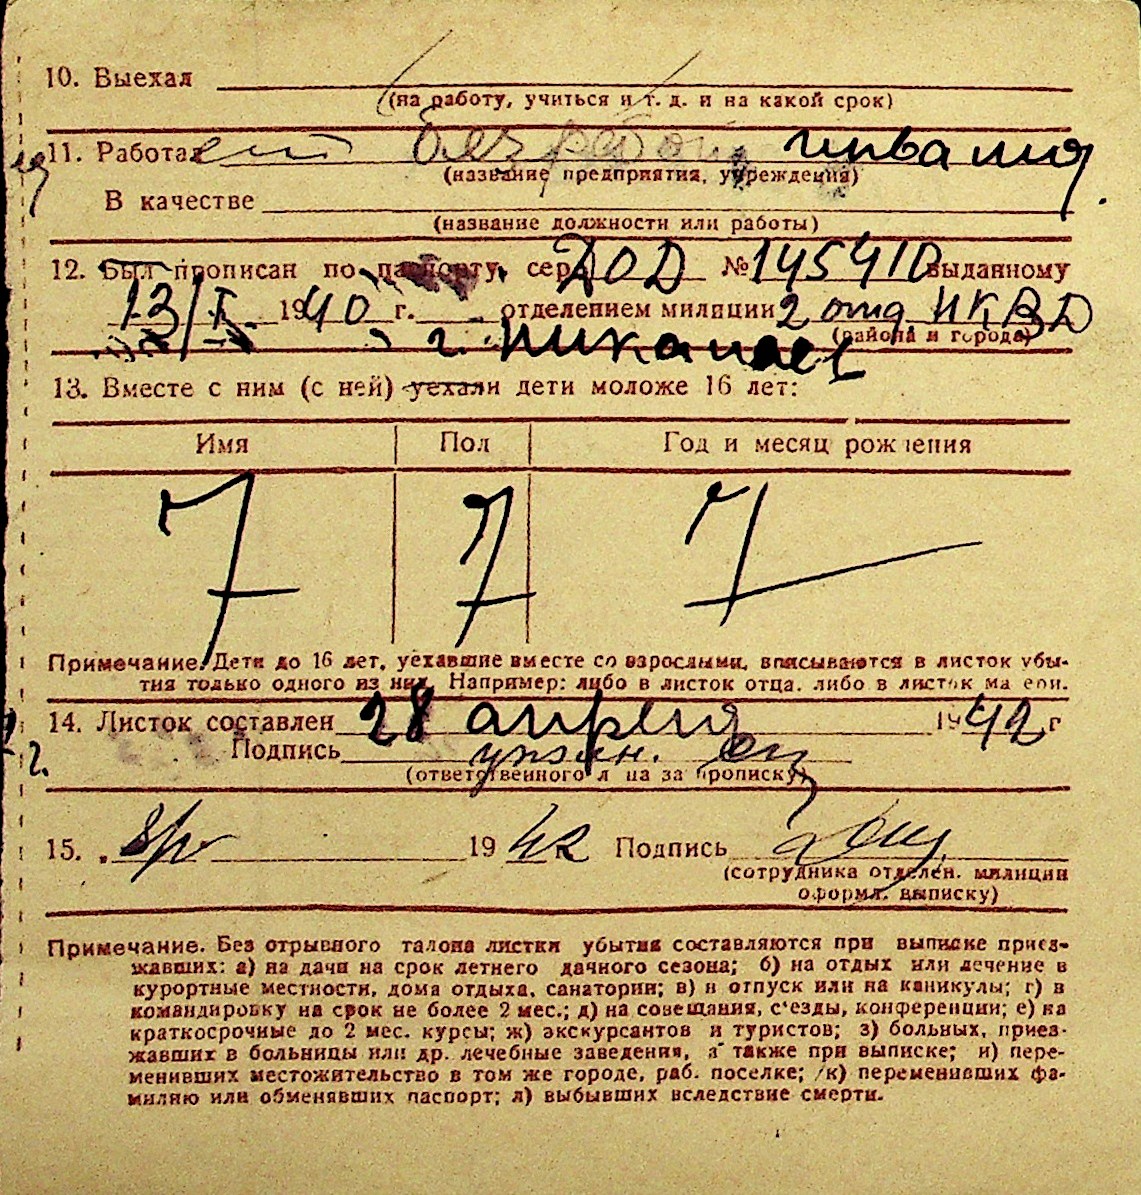 10. Выехал
(на работу, учиться и т. д. и на какой срок)
11. Работает без работы инвалид.
(название предприятия, учреждения)
В качестве
(название должности или работы)
12. Был прописан по паспорту, сер. ДОД № 145410 выданному
13/I 1940 г. отделением милиции 2 отд НКВД
(района и города)
г.
13. Вместе с ним (с ней) уехали дети моложе 16 лет:
Имя Пол Год и месяц рождения
Примечание. Дети до 16 лет, уехавшие вместе со взрослыми, вписываются в листок убы-
тия только одного из них. Например: либо в листок отца, либо в листок матери.
14. Листок составлен 28 апреля 1942 г
Подпись
(ответственного лица за прописку)
15. 1942 Подпись
(сотрудника отделен. милиции
оформл. выписку)
Примечание. Без отрывного талона листки убытия составляются при выписке приез-
жавших: а) на дачи на срок летнего дачного сезона; б) на отдых или лечение в
курортные местности, дома отдыха, санатории; в) в отпуск или на каникулы; г) в
командировку на срок не более 2 мес.; д) на совещания, с'езды, конференции; е) на
краткосрочные до 2 мес. курсы; ж) экскурсантов и туристов; з) больных, приез-
жавших в больницы или др. лечебные заведения, а также при выписке; и) пере-
менивших местожительство в том же городе, раб. поселке; к) переменивших фа-
милию или обменявших паспорт; л) выбывших вследствие смерти.